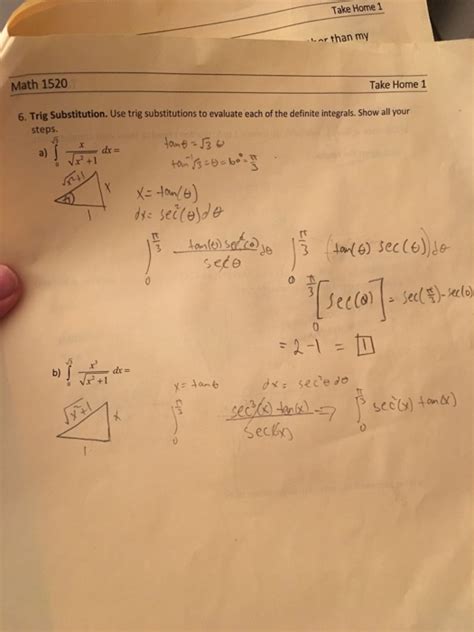 Take Home 1
than my
Math 1520
Take Home 1
6. Trig Substitution. Use trig substitutions to evaluate each of the definite integrals. Show all your
steps.
a) ∫₀^√3 x/√(x²+1) dx =
tanθ = √3
tan⁻¹√3 = θ = 60° = π/3
√x²+1
x
θ
1
x = tan(θ)
dx = sec²(θ)dθ
∫₀^(π/3) tan(θ) sec²(θ)/secθ dθ
∫₀^(π/3) (tan(θ) sec(θ))dθ
[sec(θ)]₀^(π/3) = sec(π/3) - sec(0)
= 2 - 1 = 1
b) ∫₀^√3 x³/√(x²+1) dx =
x = tanθ
dx = sec²θ dθ
√x²+1
x
1
∫₀^(π/3) sec³(x) tan(x)/sec(x) ⇒ ∫₀^(π/3) sec²(x) tan(x)